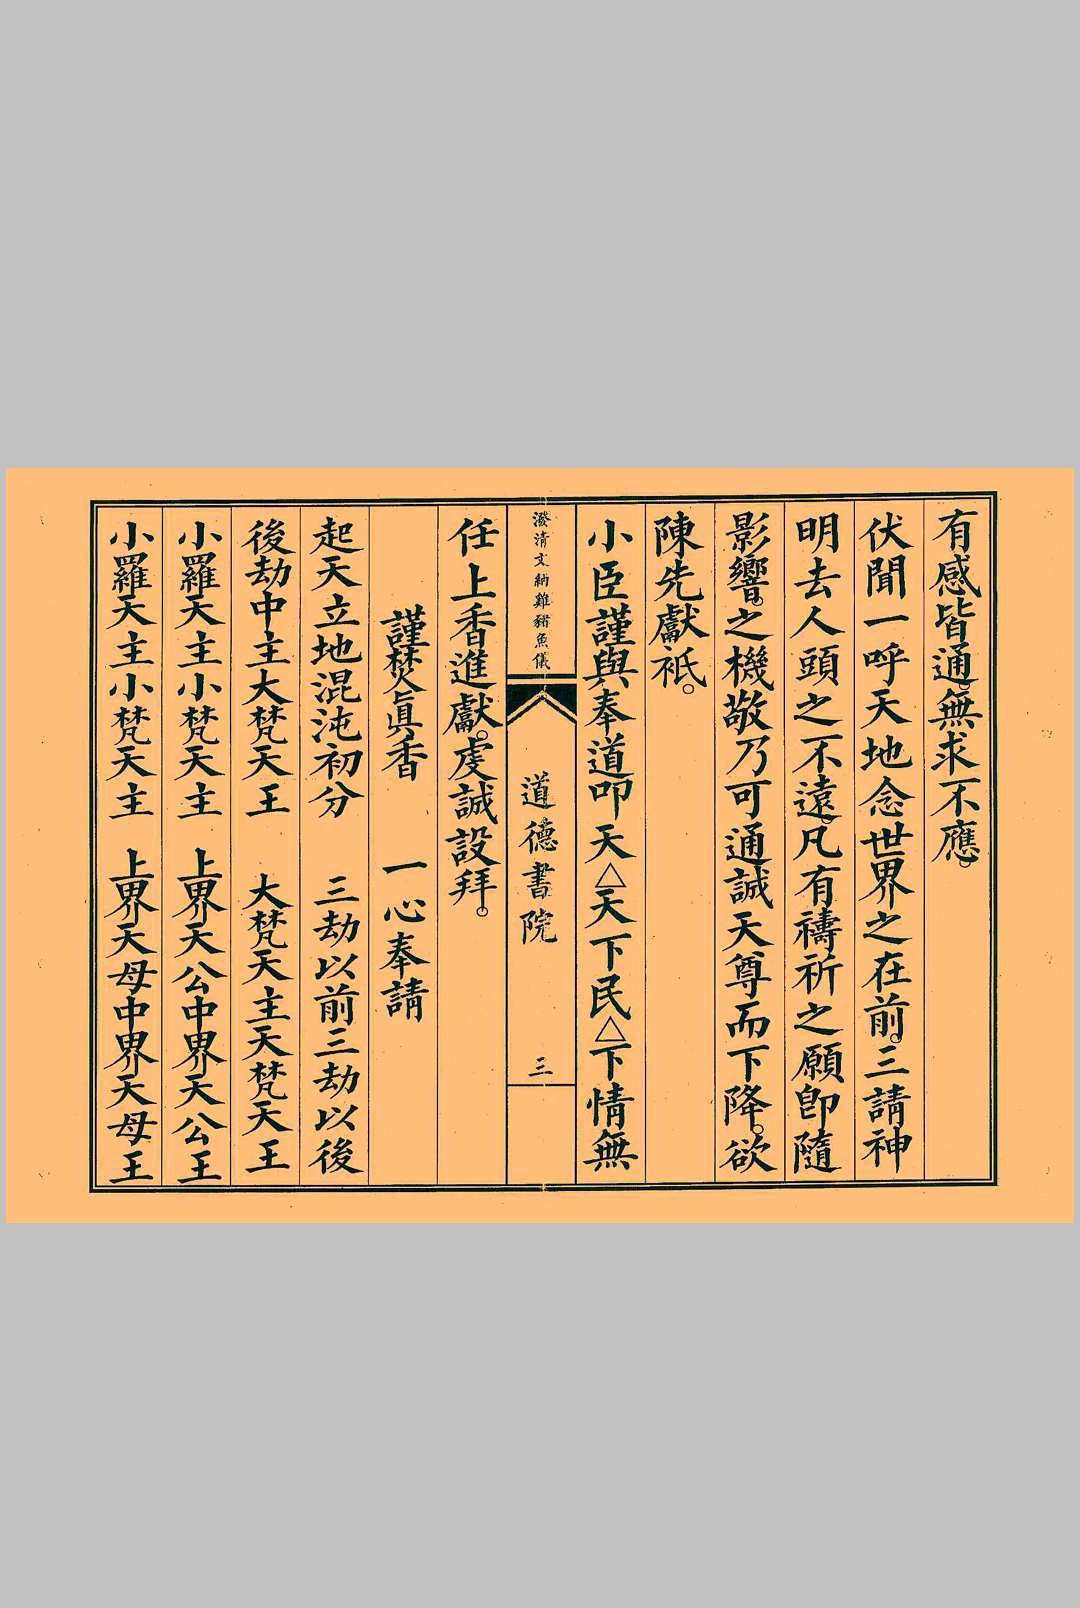 有感皆通。無求不應。
伏聞一呼天地念世界之在前。三請神
明去人頭之不遠。凡有禱祈之願卽隨
影響。之機敬乃可通誠天尊而下降。欲
陳先獻祇。
小臣謹與奉道叩天△天下民△下情無
潑清文納雞豬魚儀
道德書院
三
任上香進獻。虔誠設拜。
謹焚眞香 一心奉請
起天立地混沌初分 三劫以前三劫以後
後劫中主大梵天王 大梵天主天梵天王
小羅天主小梵天主 上界天公中界天公王
小羅天主小梵天主 上界天母中界天母王